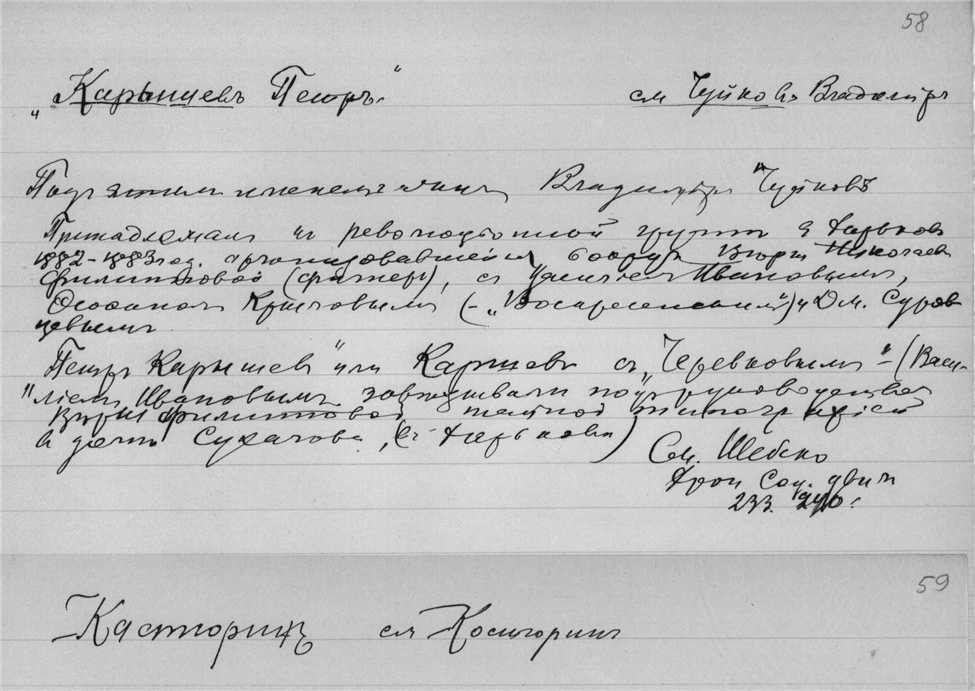 58
„Карышевъ Петръ“ см Чуйковъ Владиміръ
Подъ этимъ именемъ Владиміръ Чуйковъ
Принадлежалъ къ революціонной группѣ въ Харьковѣ
1882-1883 год. вокругъ Вѣры Николаев
Филипповой (Фигнеръ), съ Ивановымъ,
(- „Воскресенскимъ“) и Дм. Суров
цевымъ
Петръ Карышев“ или Карышевъ съ „Черевковымъ“ - (Васи-
ліемъ Ивановымъ завѣдывали подъ руководствомъ
Вѣры Филипповой тайной типографіей
въ домѣ Сухачова, (въ Харьковѣ)
См. Шебеко
Хрон Соц. движ
233. 240.
59
Касторинъ см Косторинъ